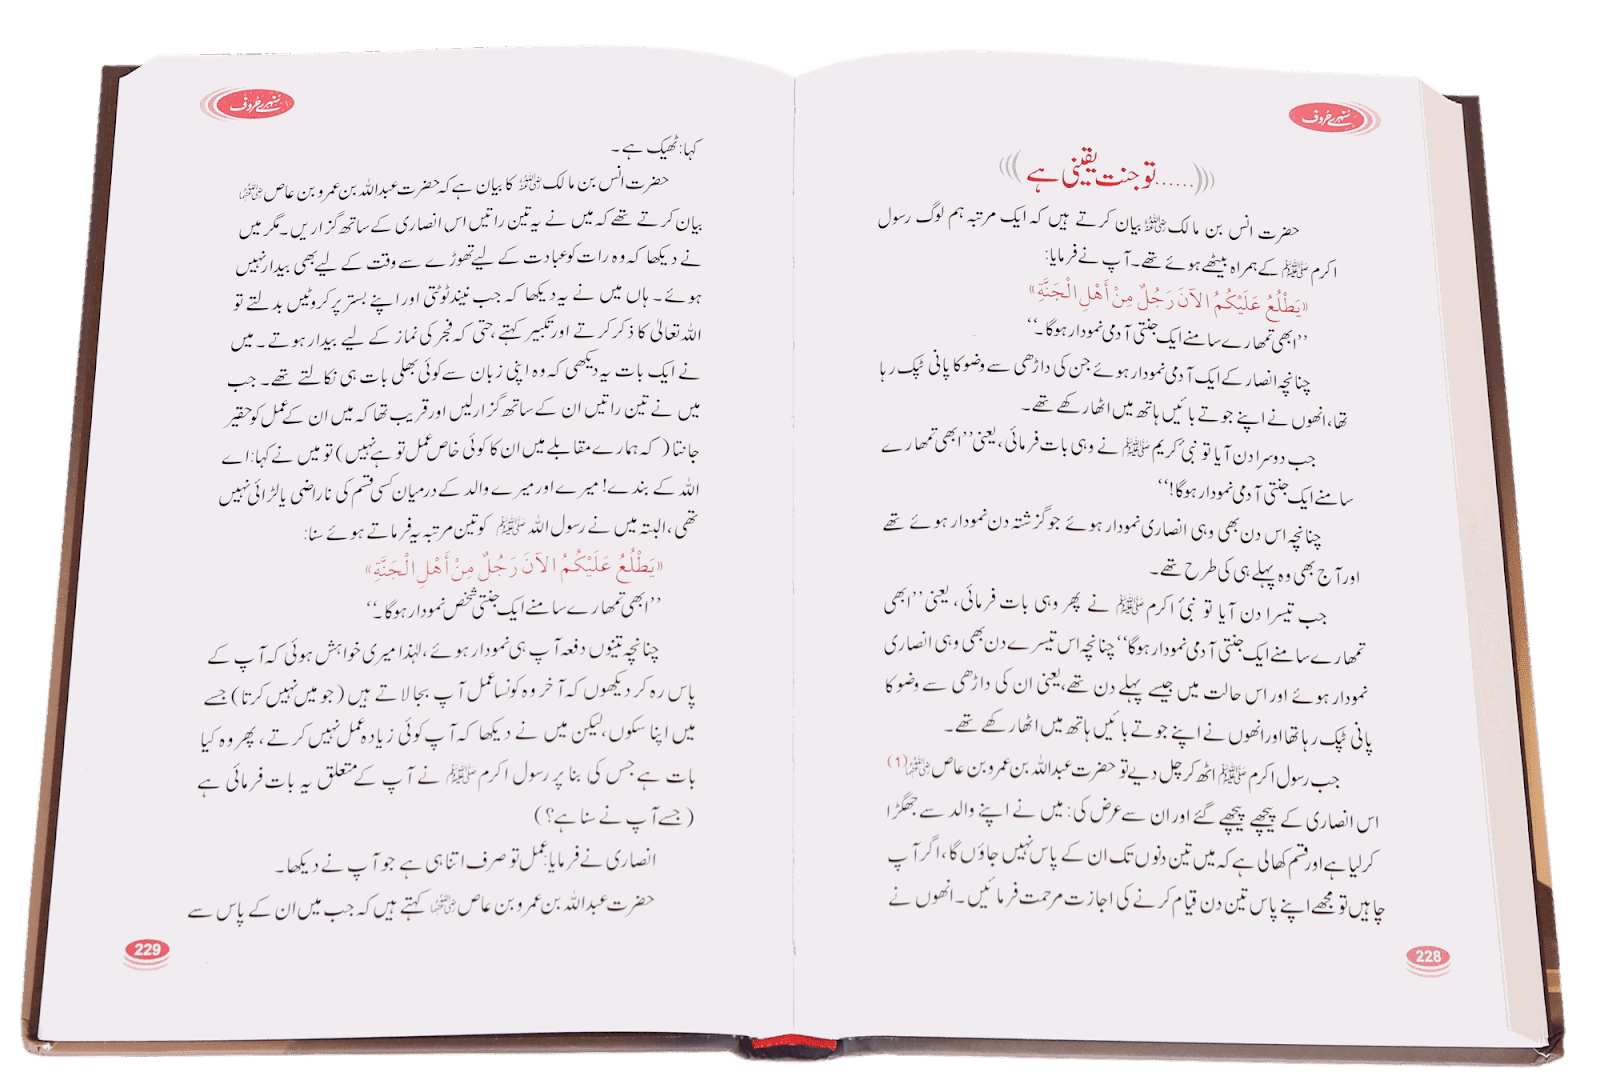 سنہرے حروف
......تو جنت یقینی ہے
حضرت انس بن مالک رضی اللہ عنہ بیان کرتے ہیں کہ ایک مرتبہ ہم لوگ رسول
اکرم ﷺ کے ہمراہ بیٹھے ہوئے تھے۔ آپ نے فرمایا:
«يَطْلُعُ عَلَيْكُمُ الآنَ رَجُلٌ مِنْ أَهْلِ الْجَنَّةِ»
’’ابھی تمھارے سامنے ایک جنتی آدمی نمودار ہوگا۔‘‘
چنانچہ انصار کے ایک آدمی نمودار ہوئے جن کی داڑھی سے وضو کا پانی ٹپک رہا
تھا، انھوں نے اپنے جوتے بائیں ہاتھ میں اٹھا رکھے تھے۔
جب دوسرا دن آیا تو نبی کریم ﷺ نے وہی بات فرمائی، یعنی ’’ابھی تمھارے
سامنے ایک جنتی آدمی نمودار ہوگا!‘‘
چنانچہ اس دن بھی وہی انصاری نمودار ہوئے جو گزشتہ دن نمودار ہوئے تھے
اور آج بھی وہ پہلے ہی کی طرح تھے۔
جب تیسرا دن آیا تو نبیٔ اکرم ﷺ نے پھر وہی بات فرمائی، یعنی ’’ابھی
تمھارے سامنے ایک جنتی آدمی نمودار ہوگا‘‘ چنانچہ اس تیسرے دن بھی وہی انصاری
نمودار ہوئے اور اس حالت میں جیسے پہلے دن تھے، یعنی ان کی داڑھی سے وضو کا
پانی ٹپک رہا تھا اور انھوں نے اپنے جوتے بائیں ہاتھ میں اٹھا رکھے تھے۔
جب رسول اکرم ﷺ اٹھ کر چل دیے تو حضرت عبداللہ بن عمرو بن عاص رضی اللہ عنہما (1)
اس انصاری کے پیچھے پیچھے گئے اور ان سے عرض کی: میں نے اپنے والد سے جھگڑا
کر لیا ہے اور قسم کھالی ہے کہ میں تین دنوں تک ان کے پاس نہیں جاؤں گا، اگر آپ
چاہیں تو مجھے اپنے پاس تین دن قیام کرنے کی اجازت مرحمت فرمائیں۔ انھوں نے
228
سنہرے حروف
کہا: ٹھیک ہے۔
حضرت انس بن مالک رضی اللہ عنہ کا بیان ہے کہ حضرت عبداللہ بن عمرو بن عاص رضی اللہ عنہما
بیان کرتے تھے کہ میں نے یہ تین راتیں اس انصاری کے ساتھ گزاریں۔ مگر میں
نے دیکھا کہ وہ رات کو عبادت کے لیے تھوڑے سے وقت کے لیے بھی بیدار نہیں
ہوئے۔ ہاں میں نے یہ دیکھا کہ جب نیند ٹوٹتی اور اپنے بستر پر کروٹیں بدلتے تو
اللہ تعالیٰ کا ذکر کرتے اور تکبیر کہتے، حتی کہ فجر کی نماز کے لیے بیدار ہوتے۔ میں
نے ایک بات یہ دیکھی کہ وہ اپنی زبان سے کوئی بھلی بات ہی نکالتے تھے۔ جب
میں نے تین راتیں ان کے ساتھ گزار لیں اور قریب تھا کہ میں ان کے عمل کو حقیر
جانتا (کہ ہمارے مقابلے میں ان کا کوئی خاص عمل تو ہے نہیں) تو میں نے کہا: اے
اللہ کے بندے! میرے اور میرے والد کے درمیان کسی قسم کی ناراضی یا لڑائی نہیں
تھی، البتہ میں نے رسول اللہ ﷺ کو تین مرتبہ یہ فرماتے ہوئے سنا:
«يَطْلُعُ عَلَيْكُمُ الآنَ رَجُلٌ مِنْ أَهْلِ الْجَنَّةِ»
’’ابھی تمھارے سامنے ایک جنتی شخص نمودار ہوگا۔‘‘
چنانچہ تینوں دفعہ آپ ہی نمودار ہوئے، لہٰذا میری خواہش ہوئی کہ آپ کے
پاس رہ کر دیکھوں کہ آخر وہ کونسا عمل آپ بجا لاتے ہیں (جو میں نہیں کرتا) جسے
میں اپنا سکوں، لیکن میں نے دیکھا کہ آپ کوئی زیادہ عمل نہیں کرتے، پھر وہ کیا
بات ہے جس کی بنا پر رسول اکرم ﷺ نے آپ کے متعلق یہ بات فرمائی ہے
(جسے آپ نے سنا ہے؟)
انصاری نے فرمایا: عمل تو صرف اتنا ہی ہے جو آپ نے دیکھا۔
حضرت عبداللہ بن عمرو بن عاص رضی اللہ عنہما کہتے ہیں کہ جب میں ان کے پاس سے
229